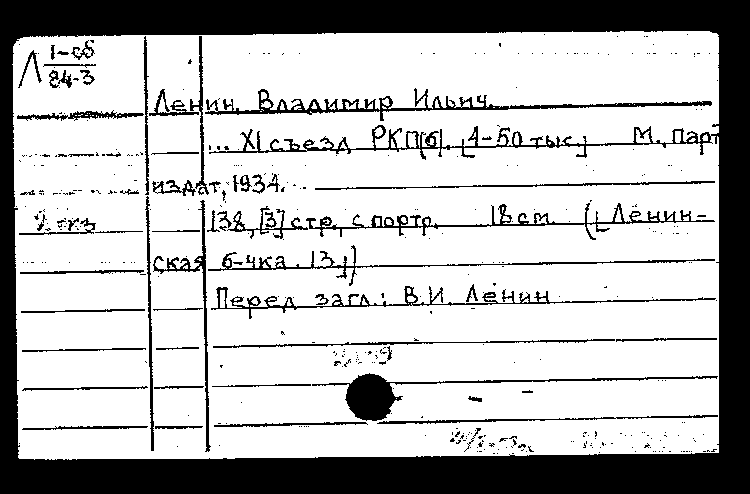 Л 1-сб
84-3
Ленин, Владимир Ильич.
... XI съезд РКП(б). [4-50 тыс.] М., Парт
издат, 1934.
2 экз
138, [3] стр., с портр. 18 см. ([Ленин-
ская б-чка. 13.])
Перед загл.: В.И. Ленин